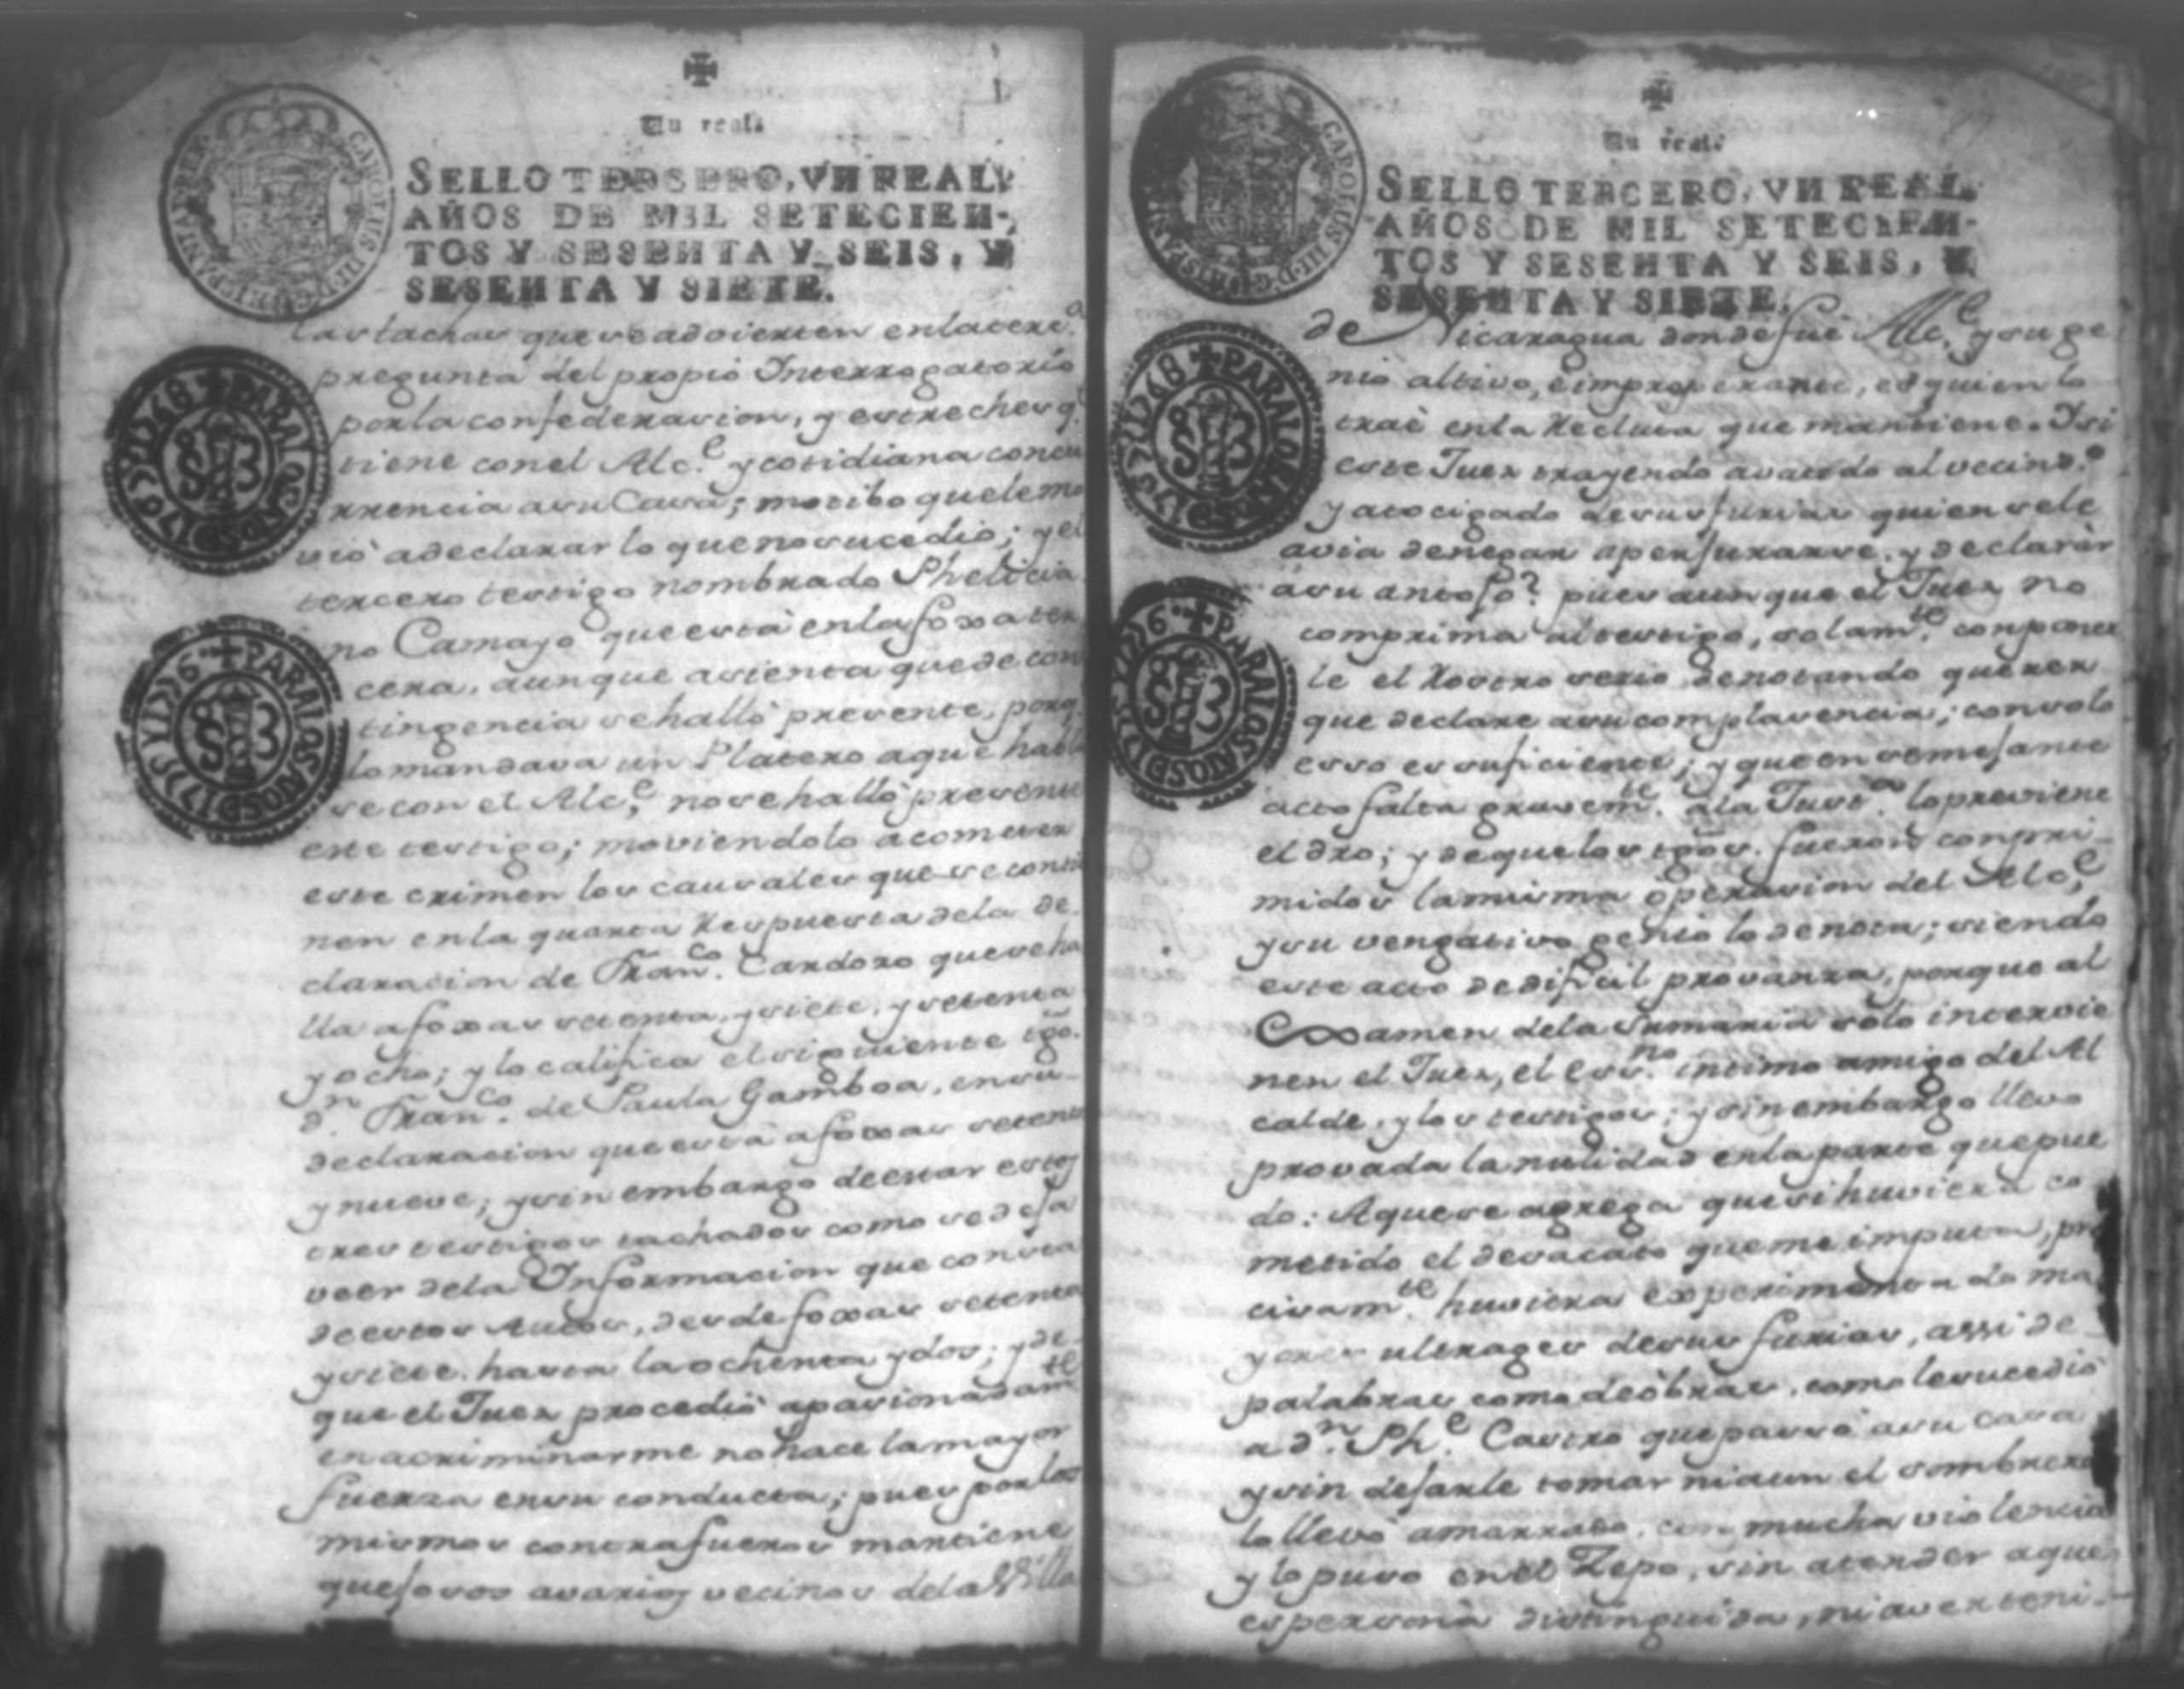 Un real.
SELLO TERCERO, VN REAL,
AÑOS DE MIL SETECIEN-
TOS Y SESENTA Y SEIS, Y
SESENTA Y SIETE.
CAROLUS III D G HISPANIAR REX
PARA LOS AÑOS D 1768
PARA LOS AÑOS D 1776
las tachas que se advierten en la terc.ª
pregunta del propio Interrogatorio
por la confederasion, y estreches q.
tiene con el Alc.e y cotidiana concu
rrencia a su Casa; motibo que le mo
vió a declarar lo que no sucedió; y el
tercero testigo nombrado Phelicia
no Camayo que está en la foxa ter
cera, aunque asienta que de con
tingencia se halló presente, porq
lo mandava un Platero a que habla
se con el Alc.e, no se halló presente
este testigo; moviendolo a cometer
este crimen los causales que se conti
nen en la quarta Respuesta de la de
claracion de Fran.co Cardozo que se ha
lla a foxas setenta, y siete, y setenta
y ocho; y lo califica el siguiente tgo.
d.n Fran.co de Paula Gamboa, en su
declaracion que está a foxas setenta
y nueve; y sin embargo de estar estos
tres testigos tachados como se deja
veer de la Informacion que consta
de estos Autos, desde foxas setenta
y siete, hasta la ochenta y dos; y de
que el Juez procedió apasionadam.te
en acriminarme no hace la mayor
fuerza en su conducta; pues por los
mismos contrafueros mantiene
quejosos a varios vecinos de la Villa
Un real.
SELLO TERCERO, VN REAL,
AÑOS DE MIL SETECIEN-
TOS Y SESENTA Y SEIS, Y
SESENTA Y SIETE.
CAROLUS III D G HISPANIAR
PARA LOS AÑOS D 1768
PARA LOS AÑOS D 1776
de Nicaragua donde fué Alc.e y su ge
nio altivo, e improperante, es quien lo
traé en la Reclusa que mantiene. Y si
este Juez trayendo asaltado al vecind.o
y atocigado de sus furias quien se le
avia de negar a perjurarse, y declarár
á su antojo? pues aunque el Juez no
comprima al testigo, solam.te con poner
le el Rostro serio denotando querer
que declare a su complasencia; con solo
esso es suficiente; y que en semejante
acto falta gravem.te a la Just.a lo previene
el dro; y de que los tgos. fueron conpri-
midos la misma operasion del Alc.e
y su vengativo genio lo denota; siendo
este acto de dificil provanza, porque al
Examen de la Sumaria solo intervie
nen el Juez, el Ess.no intimo amigo del Al
calde, y los testigos; y sin embargo llevo
provada la nulidad en la parte que pue
do: A que se agrega que si huviera co
metido el desacato que me imputa, pre
cisam.te huviera experimentado ma
yores ultrages de sus furias, assi de
palabras como de obras, como le sucedió
a d.n Ph.e Castro que passó a su casa
y sin dejarle tomar ni aun el sombrero
lo llevó amarrado, con mucha violencia
y lo puso en el Zepo, sin atender a que
es persona distinguida, ni a ver teni-